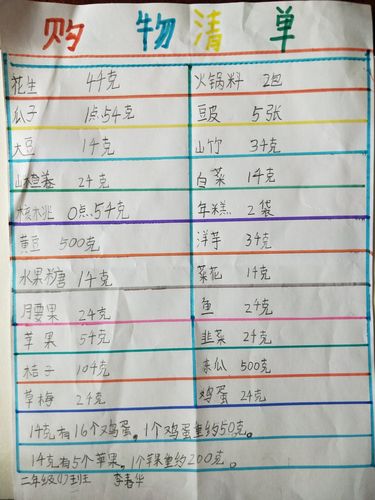 购物清单
花生 4千克 火锅料 2包
瓜子 1点5千克 豆皮 5张
大豆 1千克 山竹 3千克
山楂卷 2千克 白菜 1千克
核桃 0点5千克 年糕 2袋
黄豆 500克 洋芋 3千克
水果糖 1千克 菜花 1千克
腰果 2千克 鱼 2千克
苹果 5千克 韭菜 2千克
桔子 10千克 东瓜 500克
草梅 2千克 鸡蛋 2千克
1千克有16个鸡蛋。1个鸡蛋重约50克。
1千克有5个苹果,1个苹果重约200克。
二年级(1)班 李春华